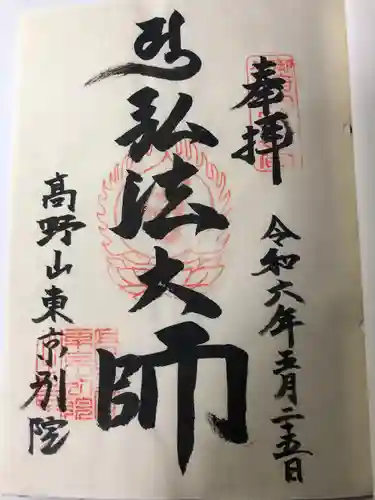 奉拝
令和六年五月二十五日
弘法大師
高野山東京別院